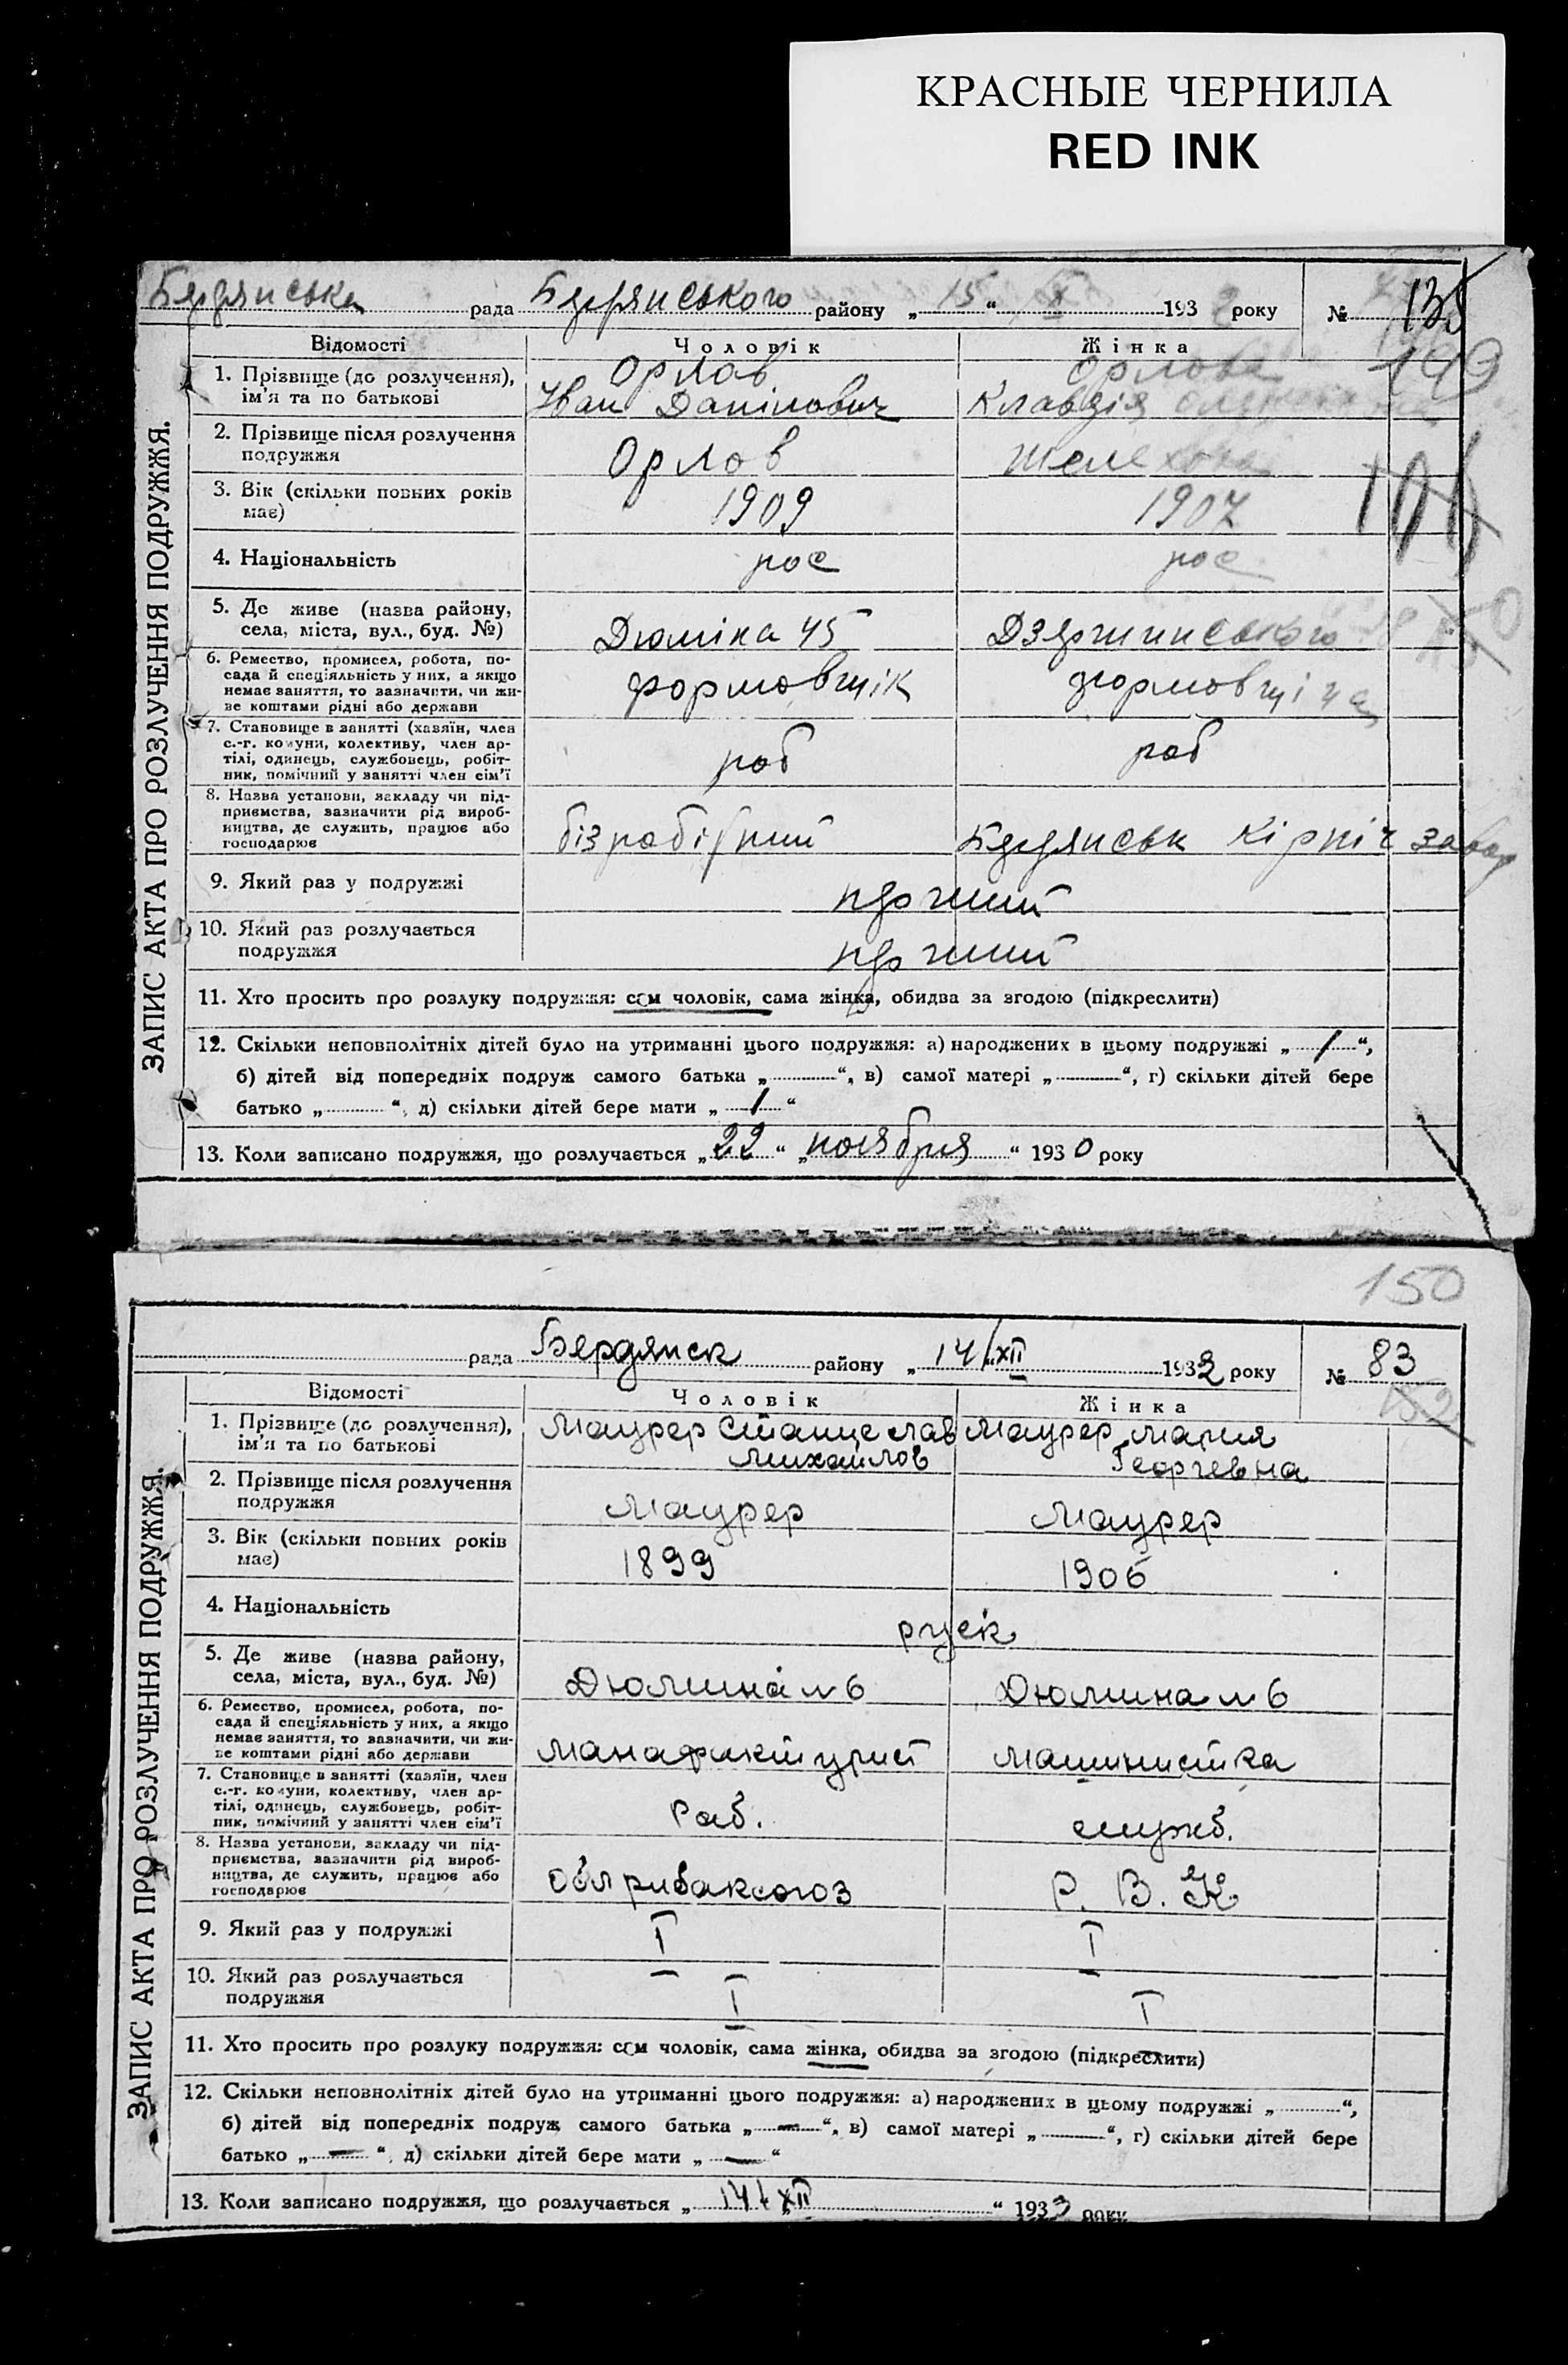 КРАСНЫЕ ЧЕРНИЛА
RED INK
Бердянська рада Бердянського району „15“ X 193 року № 135
149
ЗАПИС АКТА ПРО РОЗЛУЧЕННЯ ПОДРУЖЖЯ.
Відомості Чоловік Жінка
1. Прізвище (до розлучення), ім'я та по батькові Орлов Орлова
Иван Данілович Клавдія
2. Прізвище після розлучення подружжя Орлов Шелехова
3. Вік (скільки повних років має) 1909 1907
4. Національність рос рос
5. Де живе (назва району, села, міста, вул., буд. №) Дюміна 45 Дзержинського
6. Ремество, промисел, робота, посада й спеціяльність у них, а якщо немає заняття, то зазначити, чи живе коштами рідні або держави формовщік формовщіца
7. Становище в занятті (хазяїн, член с.-г. комуни, колективу, член артілі, одинець, службовець, робітник, помічний у занятті член сім'ї роб роб
8. Назва установи, закладу чи підприємства, зазначити рід виробництва, де служить, працює або господарює бізробітний Бердянськ Кірпіч завод
9. Який раз у подружжі перший
10. Який раз розлучається подружжя перший
11. Хто просить про розлуку подружжя: сам чоловік, сама жінка, обидва за згодою (підкреслити)
12. Скільки неповнолітніх дітей було на утриманні цього подружжя: а) народжених в цьому подружжі „1“,
б) дітей від попередніх подруж самого батька „“, в) самої матері „“, г) скільки дітей бере
батько „“, д) скільки дітей бере мати „1“
13. Коли записано подружжя, що розлучається „22“ „ноября“ 1930 року
150
рада Бердянск району „14/XII 1932 року № 83
152
ЗАПИС АКТА ПРО РОЗЛУЧЕННЯ ПОДРУЖЖЯ.
Відомості Чоловік Жінка
1. Прізвище (до розлучення), ім'я та по батькові Маурер Станислав Маурер Мария
Михайлов Георгевна
2. Прізвище після розлучення подружжя Маурер Маурер
3. Вік (скільки повних років має) 1899 1906
4. Національність руск
5. Де живе (назва району, села, міста, вул., буд. №) Дюмина № 6 Дюмина № 6
6. Ремество, промисел, робота, посада й спеціяльність у них, а якщо немає заняття, то зазначити, чи живе коштами рідні або держави Манафактурист Машинистка
7. Становище в занятті (хазяїн, член с.-г. комуни, колективу, член артілі, одинець, службовець, робітник, помічний у занятті член сім'ї Раб. служб.
8. Назва установи, закладу чи підприємства, зазначити рід виробництва, де служить, працює або господарює Облрибаксоюз Р. В. К
9. Який раз у подружжі I I
10. Який раз розлучається подружжя I I
11. Хто просить про розлуку подружжя: сам чоловік, сама жінка, обидва за згодою (підкреслити)
12. Скільки неповнолітніх дітей було на утриманні цього подружжя: а) народжених в цьому подружжі „“,
б) дітей від попередніх подруж самого батька „—“, в) самої матері „“, г) скільки дітей бере
батько „—“, д) скільки дітей бере мати „—“
13. Коли записано подружжя, що розлучається „14/XII“ 1933 року